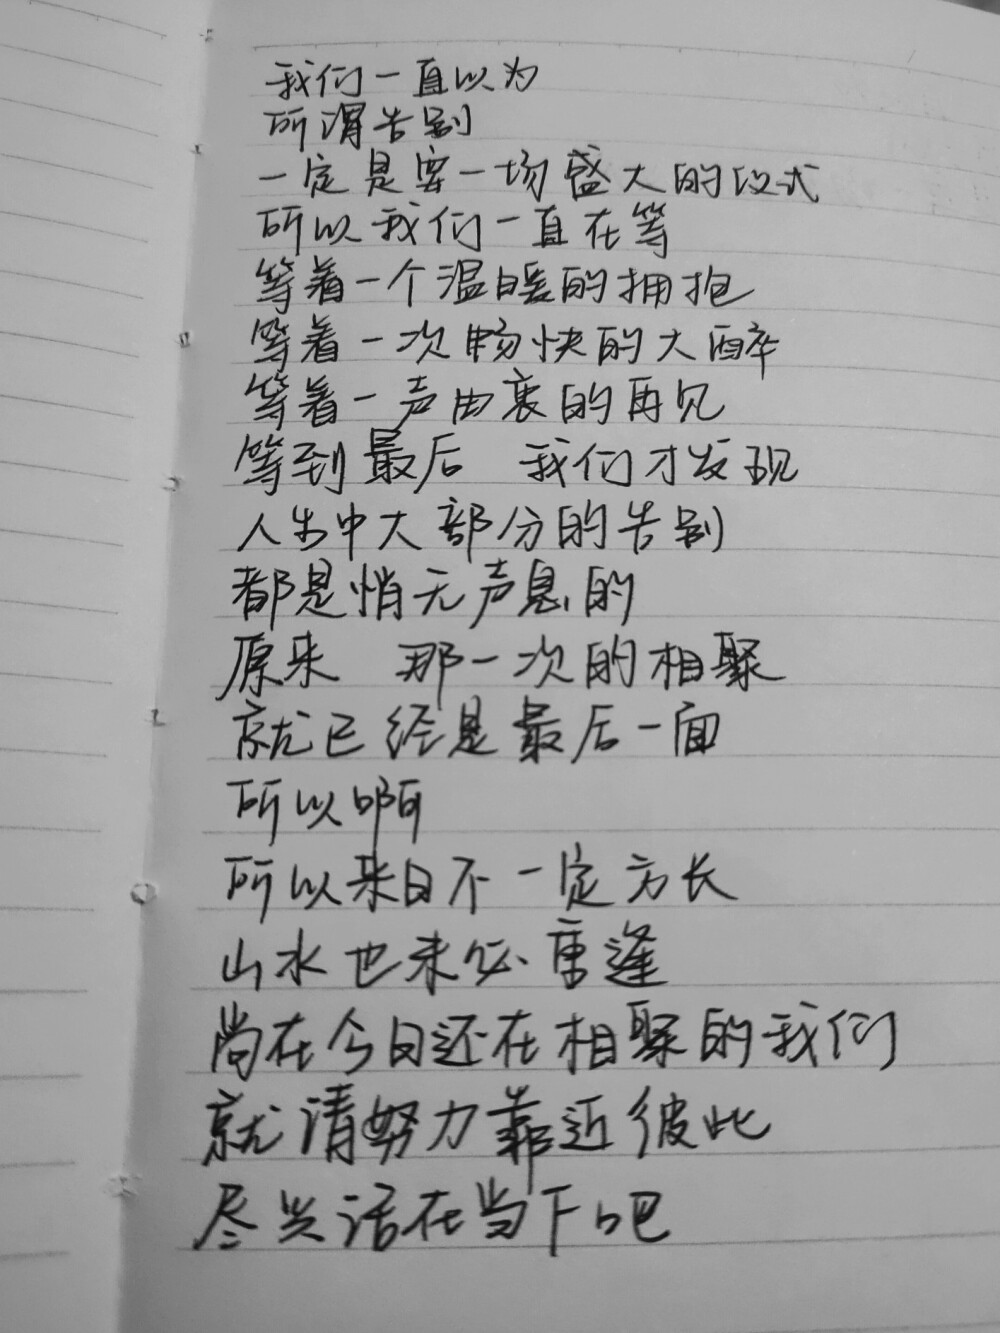 我们一直以为
所谓告别
一定是要一场盛大的仪式
所以我们一直在等
等着一个温暖的拥抱
等着一次畅快的大醉
等着一声由衷的再见
等到最后 我们才发现
人生中大部分的告别
都是悄无声息的
原来 那一次的相聚
就已经是最后一面
所以啊
所以来日不一定方长
山水也未必重逢
尚在今日还在相聚的我们
就请努力靠近彼此
尽兴活在当下吧